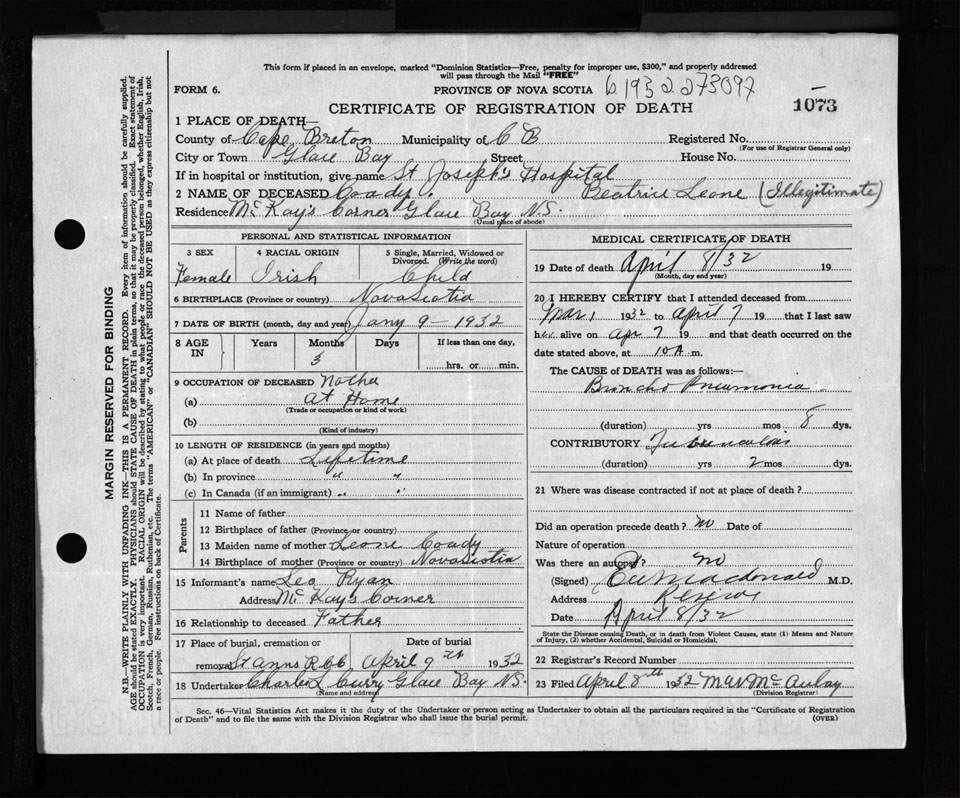 This form if placed in an envelope, marked "Dominion Statistics—Free, penalty for improper use, $300," and properly addressed
will pass through the Mail "FREE"
FORM 6.
PROVINCE OF NOVA SCOTIA
6 1932 273097
CERTIFICATE OF REGISTRATION OF DEATH
1073
1 PLACE OF DEATH—
County of Cape Breton Municipality of C B Registered No.
(For use of Registrar General only)
City or Town Glace Bay Street House No.
If in hospital or institution, give name St Joseph's Hospital
2 NAME OF DECEASED Coady. Beatrice Leone (Illegitimate)
Residence McKay's Corner Glace Bay N.S.
(Usual place of abode)
PERSONAL AND STATISTICAL INFORMATION
3 SEX 4 RACIAL ORIGIN 5 Single, Married, Widowed or
Divorced. (Write the word)
Female Irish Child
6 BIRTHPLACE (Province or country) Nova Scotia
7 DATE OF BIRTH (month, day and year) Jany 9 - 1932
8 AGE IN Years Months Days If less than one day,
3 hrs. or min.
9 OCCUPATION OF DECEASED
(a) At Home
(Trade or occupation or kind of work)
(b)
(Kind of industry)
10 LENGTH OF RESIDENCE (in years and months)
(a) At place of death Lifetime
(b) In province " "
(c) In Canada (if an immigrant) " "
Parents
11 Name of father
12 Birthplace of father (Province or country)
13 Maiden name of mother Leone Coady
14 Birthplace of mother (Province or country) Nova Scotia
15 Informant's name Leo Ryan
Address McKay's Corner
16 Relationship to deceased Father
17 Place of burial, cremation or Date of burial
removal St Anns April 9th 1932
18 Undertaker Charles L Curry Glace Bay N.S.
(Name and address)
MEDICAL CERTIFICATE OF DEATH
19 Date of death April 8/32 19
(Month, day and year)
20 I HEREBY CERTIFY that I attended deceased from
Mar 1 1932 to April 7 19 that I last saw
h alive on apr 7 19 and that death occurred on the
date stated above, at 10 A m.
The CAUSE of DEATH was as follows:—
Broncho Pneumonia
(duration) yrs mos 8 dys.
CONTRIBUTORY Tuberculosis
(duration) yrs 2 mos dys.
21 Where was disease contracted if not at place of death?
Did an operation precede death? no Date of
Nature of operation
Was there an autopsy? no
(Signed) Macdonald M.D.
Address Reserve
Date April 8/32
State the Disease causing Death, or in death from Violent Causes, state (1) Means and Nature
of Injury, (2) whether Accidental, Suicidal or Homicidal.
22 Registrar's Record Number
23 Filed April 8th 1932 McAulay
(Division Registrar)
Sec. 46—Vital Statistics Act makes it the duty of the Undertaker or person acting as Undertaker to obtain all the particulars required in the "Certificate of Registration
of Death" and to file the same with the Division Registrar who shall issue the burial permit. (OVER)
MARGIN RESERVED FOR BINDING
N.B.—WRITE PLAINLY WITH UNFADING INK—THIS IS A PERMANENT RECORD. Every item of information should be carefully supplied.
AGE should be stated EXACTLY. PHYSICIANS should STATE CAUSE OF DEATH in plain terms, so that it may be properly classified. Exact statement of
OCCUPATION is very important. RACIAL ORIGIN will be described by stating to what people or race the deceased person belonged, whether English, Irish,
Scotch, French, German, Russian, Ruthenian, etc. The terms "AMERICAN" or "CANADIAN" SHOULD NOT BE USED as they express citizenship but not
a race or people. See instructions on back of Certificate.